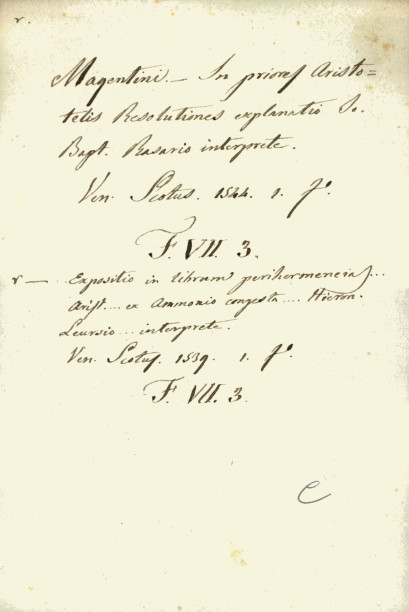 r
Magentini. — In priores Aristo=
telis Resolutiones explanatio Jo.
Bapt. Rasario interprete.
Ven. Scotus. 1544. 1. f.º
F. VII. 3.
r — Expositio in librum perihermeneias...
Arist.... ex Ammonio congesta.... Hieron.
Leursio... interprete.
Ven. Scotus. 1539. 1. f.º
F. VII. 3.
e